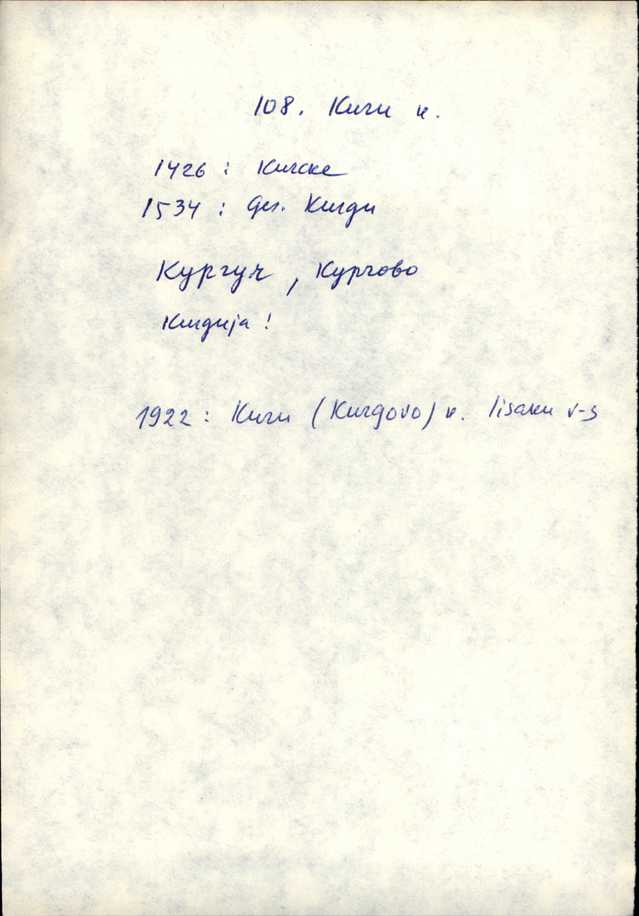 108. Kuru k.
1426 :
1534 : Kurgi
Кургуч, Кургово
Kurgija!
1922 : Kuru (Kurgovo) k. Iisaku v-s